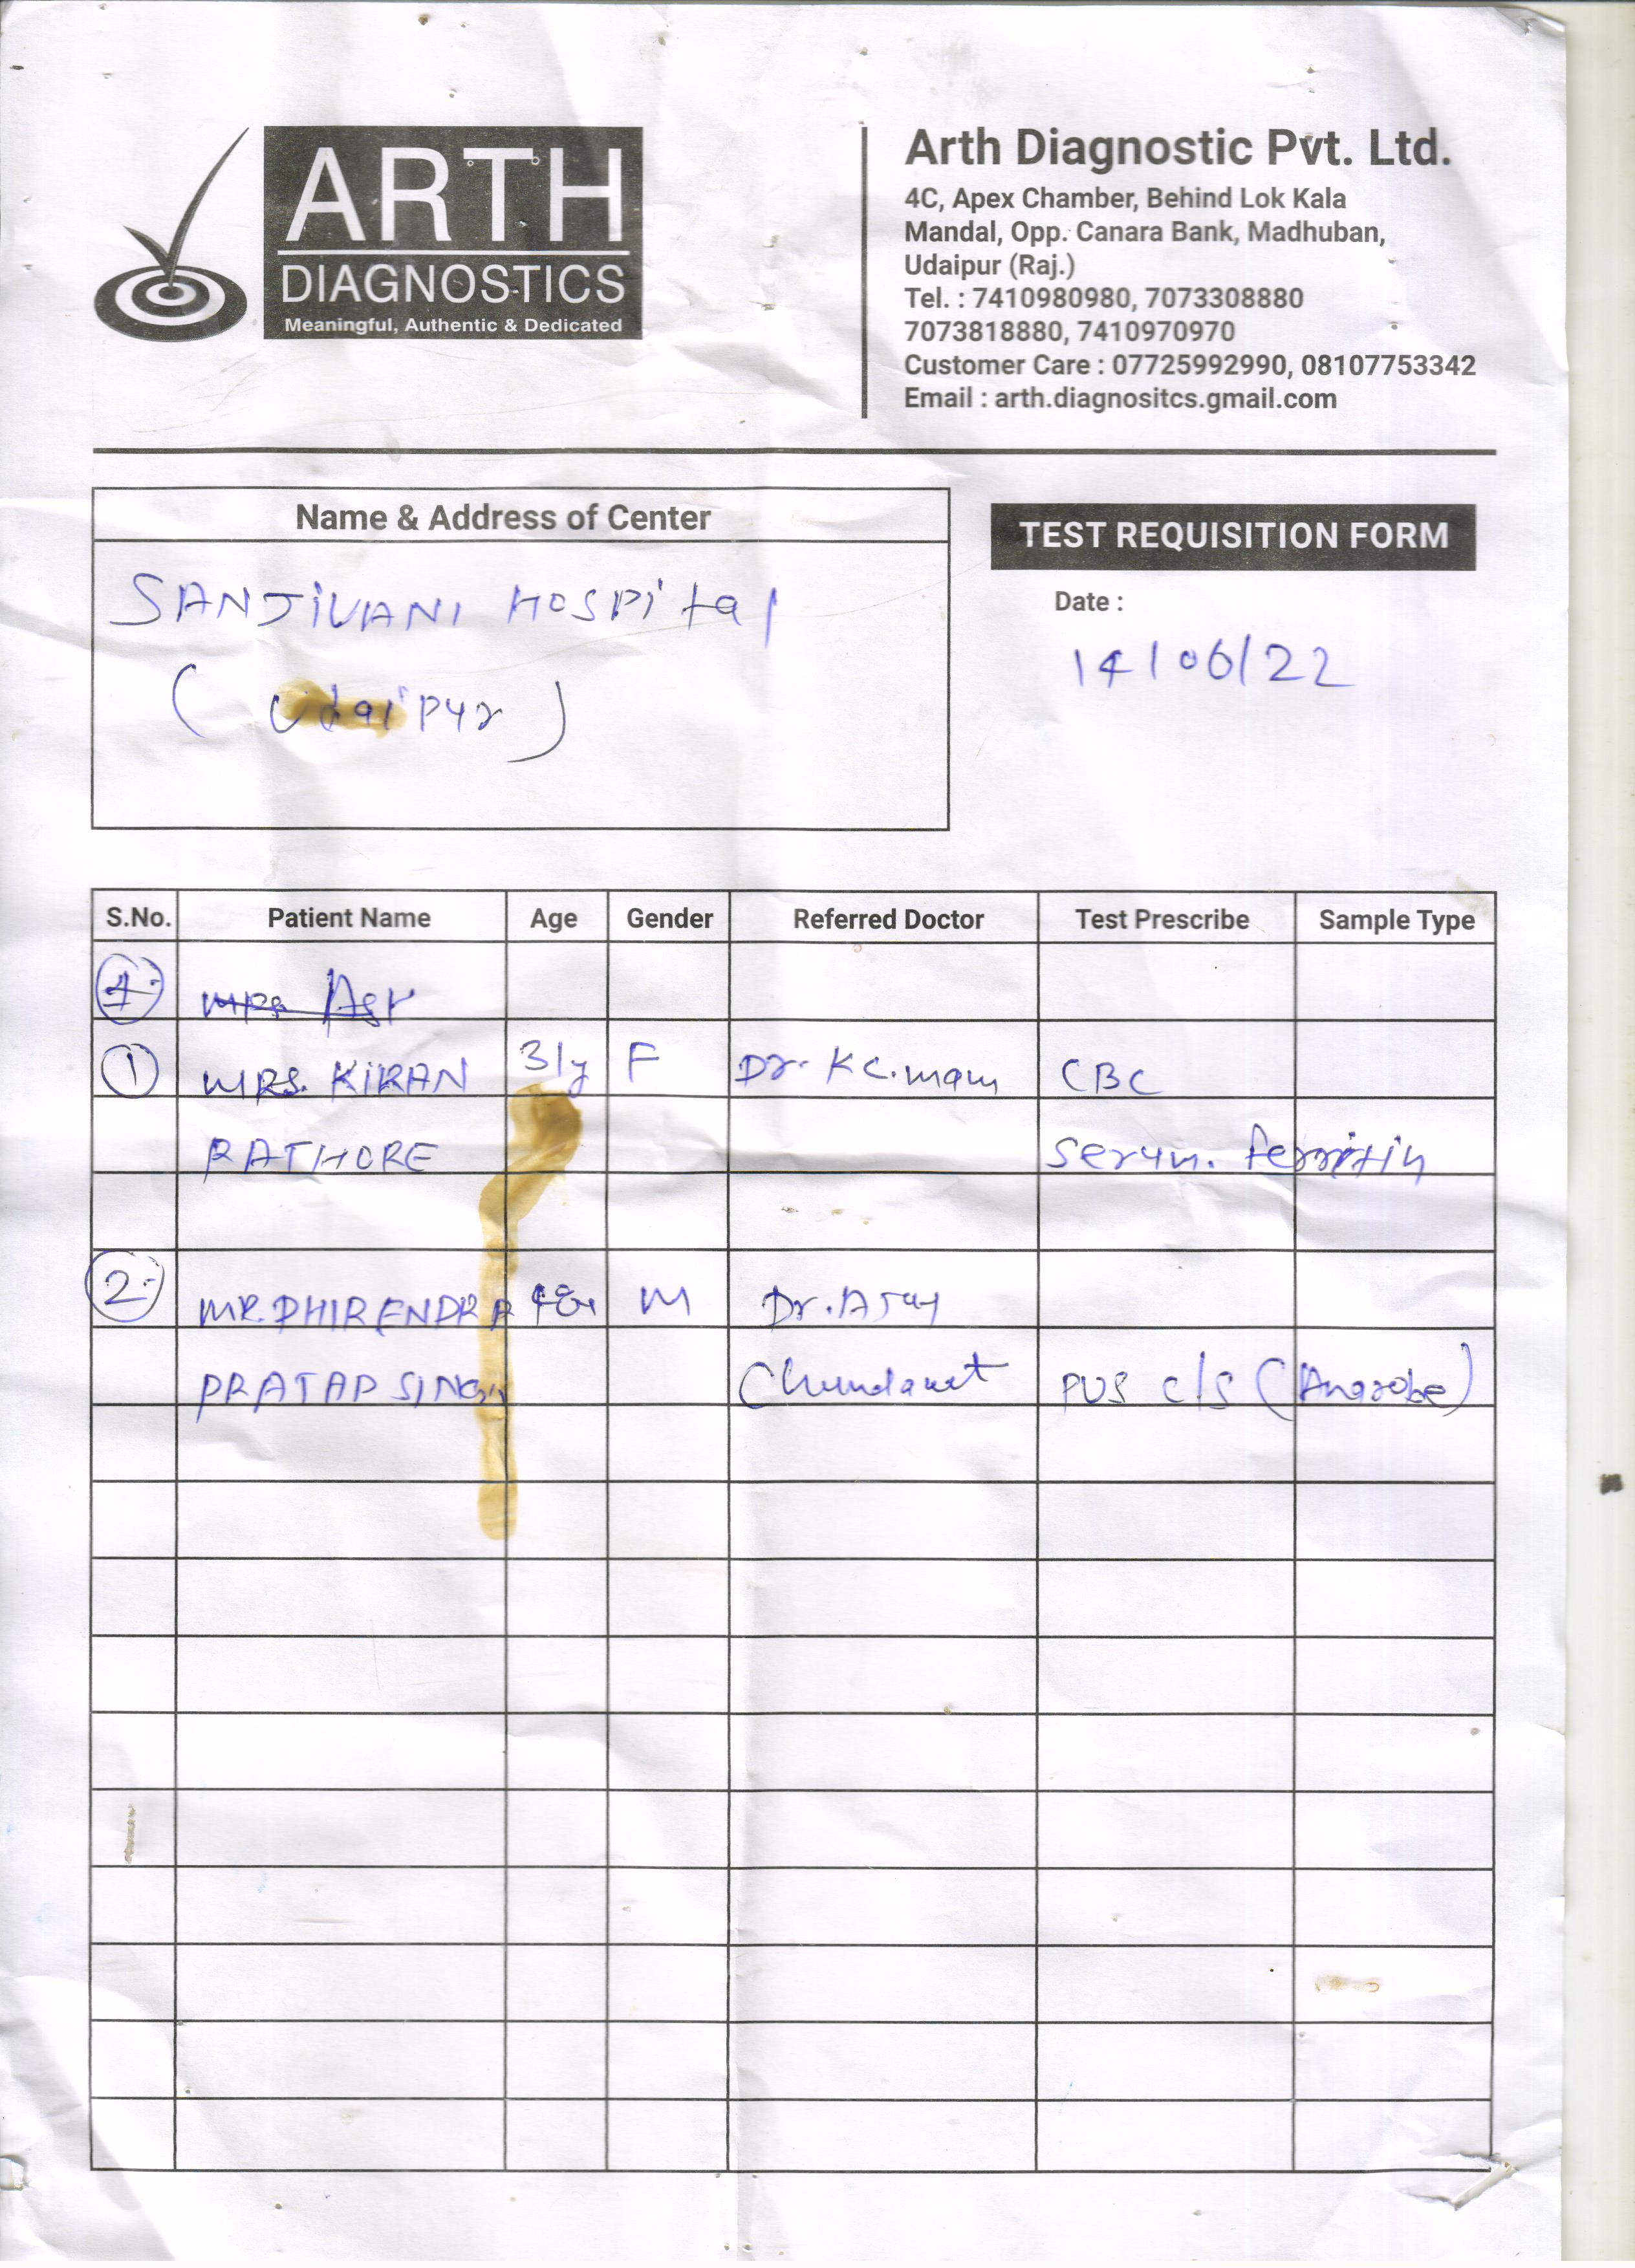 ARTH
DIAGNOSTICS
Meaningful, Authentic & Dedicated
Arth Diagnostic Pvt. Ltd.
4C, Apex Chamber, Behind Lok Kala
Mandal, Opp. Canara Bank, Madhuban,
Udaipur (Raj.)
Tel. : 7410980980, 7073308880
7073818880, 7410970970
Customer Care : 07725992990, 08107753342
Email : arth.diagnositcs.gmail.com
Name & Address of Center
SANJIVANI HOSPital
(Udaipur)
TEST REQUISITION FORM
Date :
14/06/22
S.No. Patient Name Age Gender Referred Doctor Test Prescribe Sample Type
1 MRS. KIRAN 31y F Dr. KC. mam CBC
RATHORE Serum. ferritin
2 MR. DHIRENDRA M Dr. Ajay
PRATAP SINGH Chundawat PUS c/s (Anarobe)